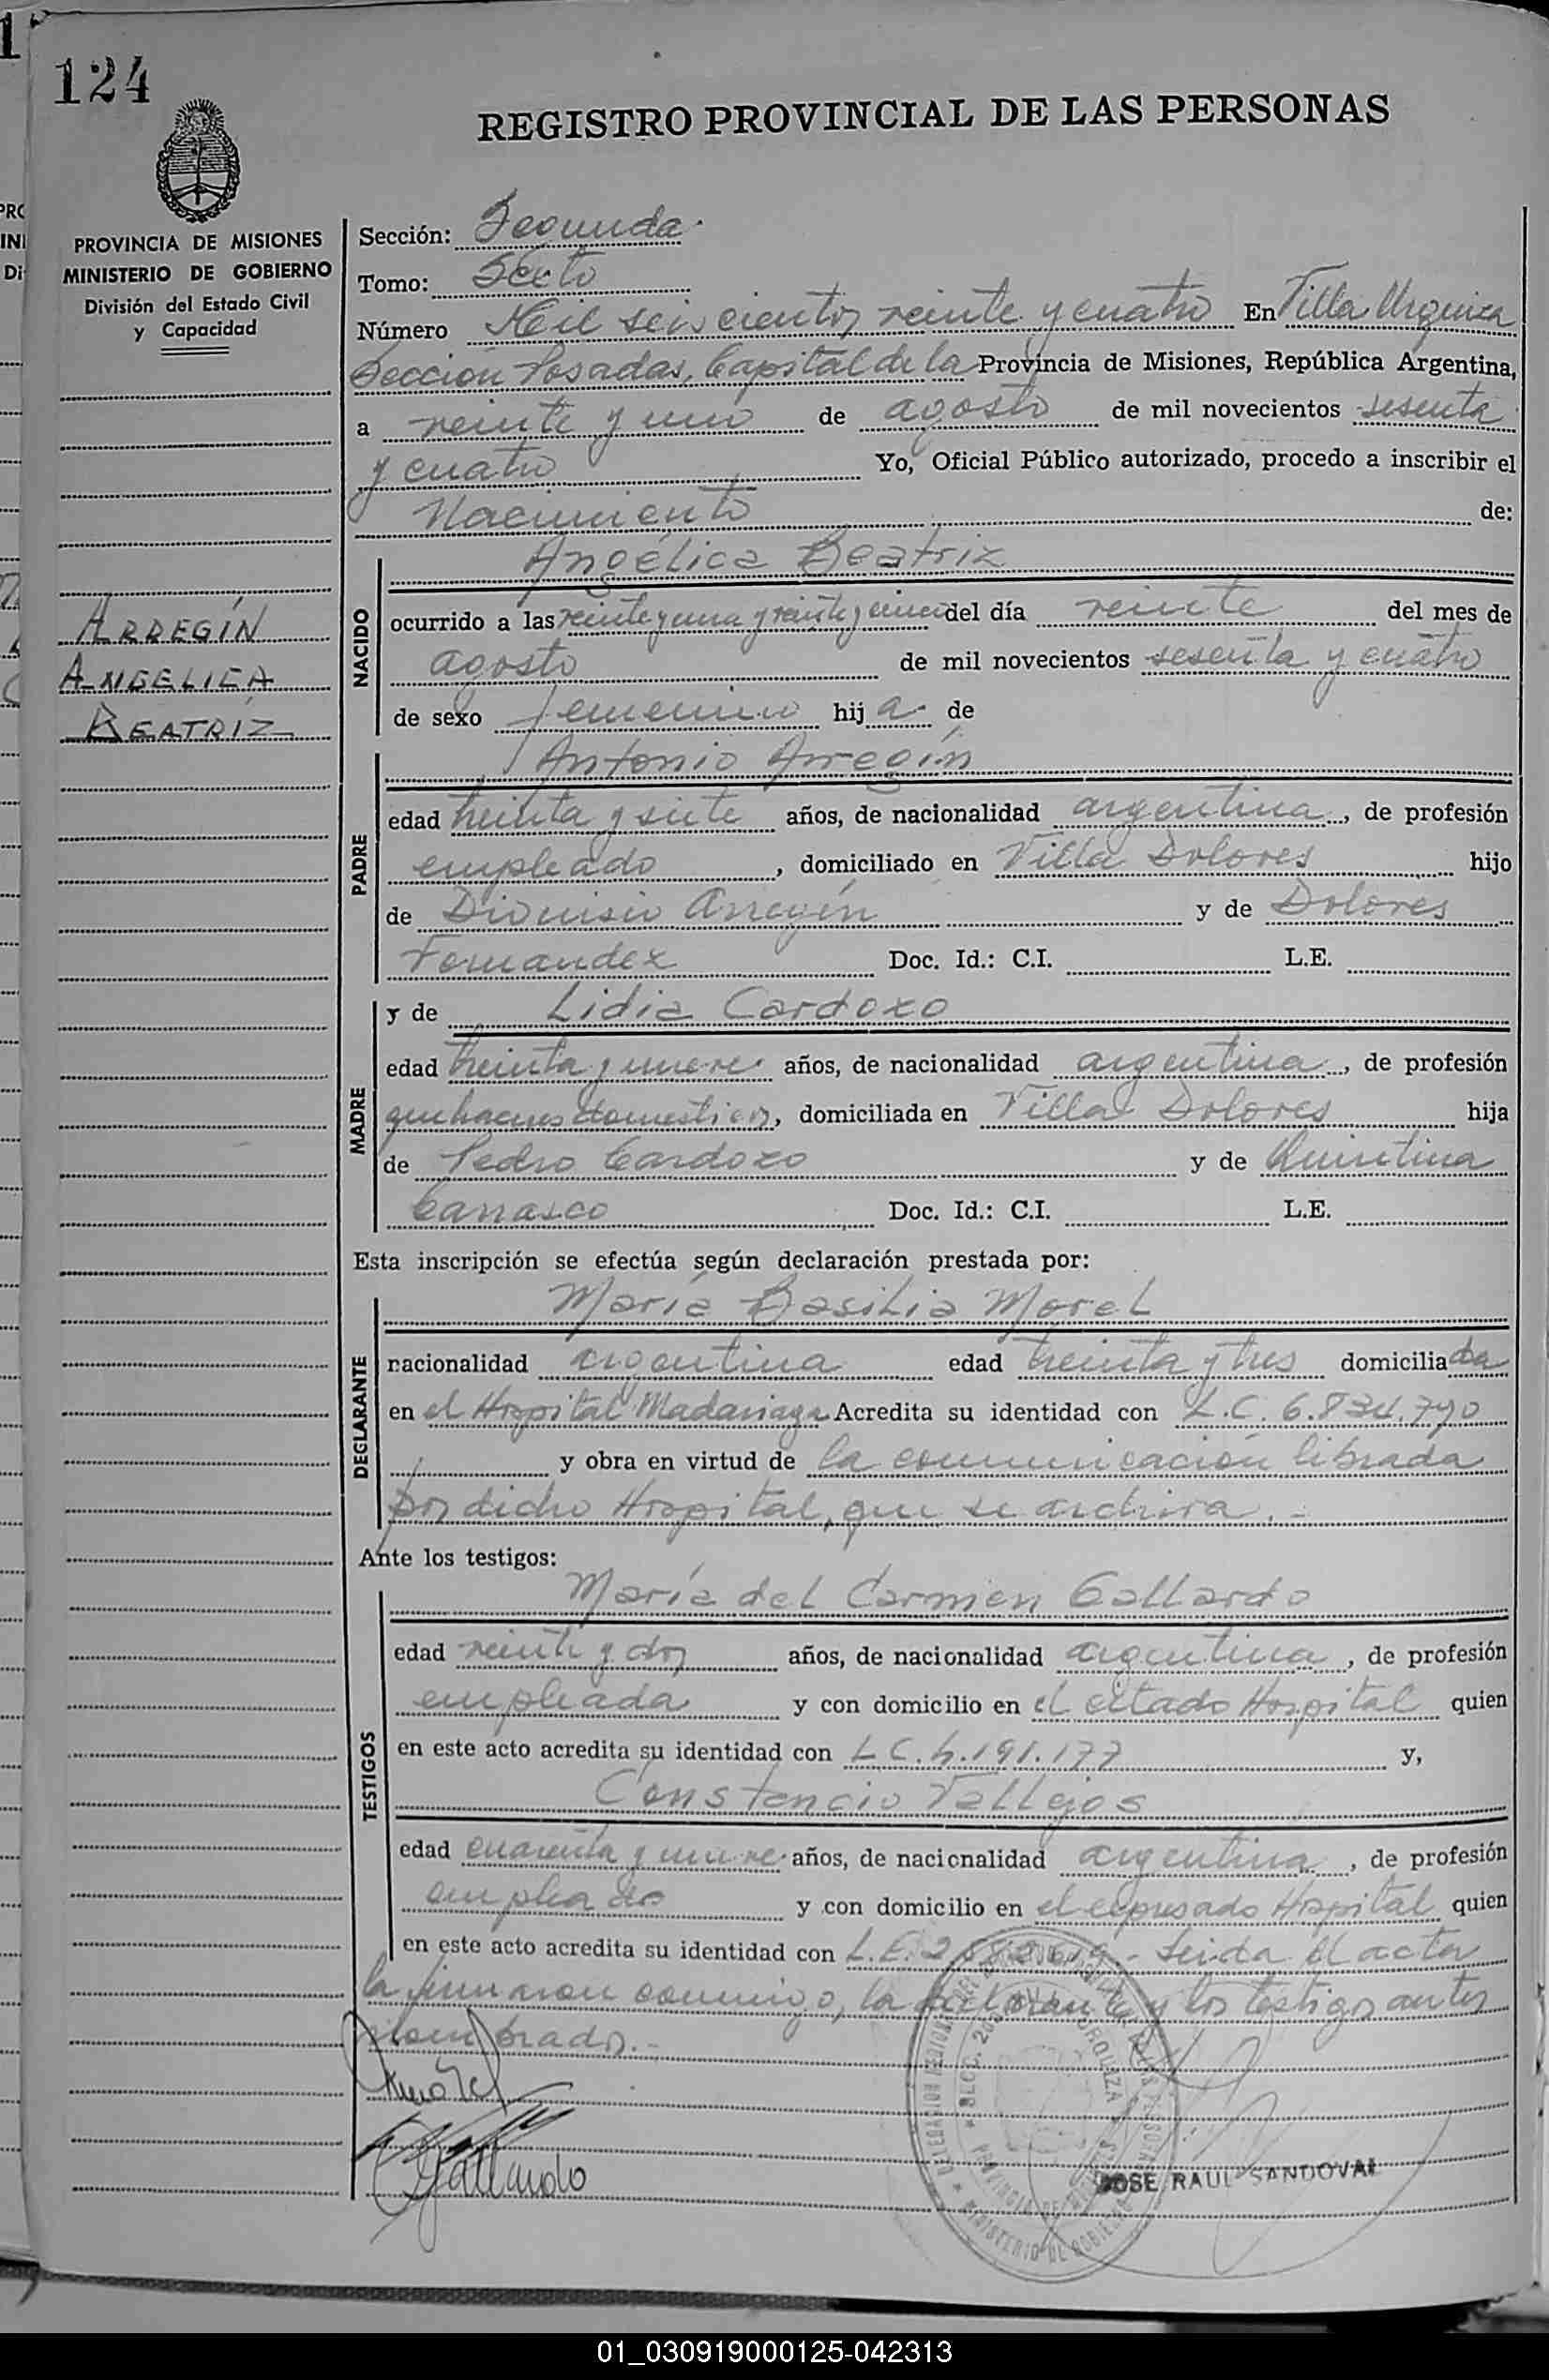 124
REGISTRO PROVINCIAL DE LAS PERSONAS
PROVINCIA DE MISIONES
MINISTERIO DE GOBIERNO
División del Estado Civil
y Capacidad
ARREGÍN
ANGELICA
BEATRIZ
Sección: Segunda.
Tomo: Sexto
Número Mil seiscientos veinte y cuatro En Villa Urquiza
Sección Posadas, Capital de la Provincia de Misiones, República Argentina,
a veinte y uno de agosto de mil novecientos sesenta
y cuatro Yo, Oficial Público autorizado, procedo a inscribir el
Nacimiento de:
NACIDO
Angélica Beatriz
ocurrido a las veinte y una y veinte y cinco del día veinte del mes de
agosto de mil novecientos sesenta y cuatro
de sexo femenino hij a de
PADRE
Antonio Arregín
edad treinta y siete años, de nacionalidad argentina, de profesión
empleado, domiciliado en Villa Dolores hijo
de Dionisio Arregín y de Dolores
Fernandez Doc. Id.: C.I. L.E.
MADRE
y de Lidia Cardozo
edad treinta y nueve años, de nacionalidad argentina, de profesión
quehaceres domesticos, domiciliada en Villa Dolores hija
de Pedro Cardozo y de Quintina
Carrasco Doc. Id.: C.I. L.E.
Esta inscripción se efectúa según declaración prestada por:
DECLARANTE
María Basilia Morel
nacionalidad argentina edad treinta y tres domiciliada
en el Hospital Madariaga Acredita su identidad con L.C. 6.834.790
y obra en virtud de la comunicación librada
por dicho Hospital, que se archiva.-
Ante los testigos:
TESTIGOS
María del Carmen Gallardo
edad veinte y dos años, de nacionalidad argentina, de profesión
empleada y con domicilio en el citado Hospital quien
en este acto acredita su identidad con L C. 4.191.177 y,
Constancio Vallejos
edad cuarenta y nueve años, de nacionalidad argentina, de profesión
empleado y con domicilio en el expresado Hospital quien
en este acto acredita su identidad con L.E. Leida el acta
la firmaron conmigo, la declarante y los testigos antes
nombrados.-
Gallardo
JOSE RAUL SANDOVAL
01_030919000125-042313